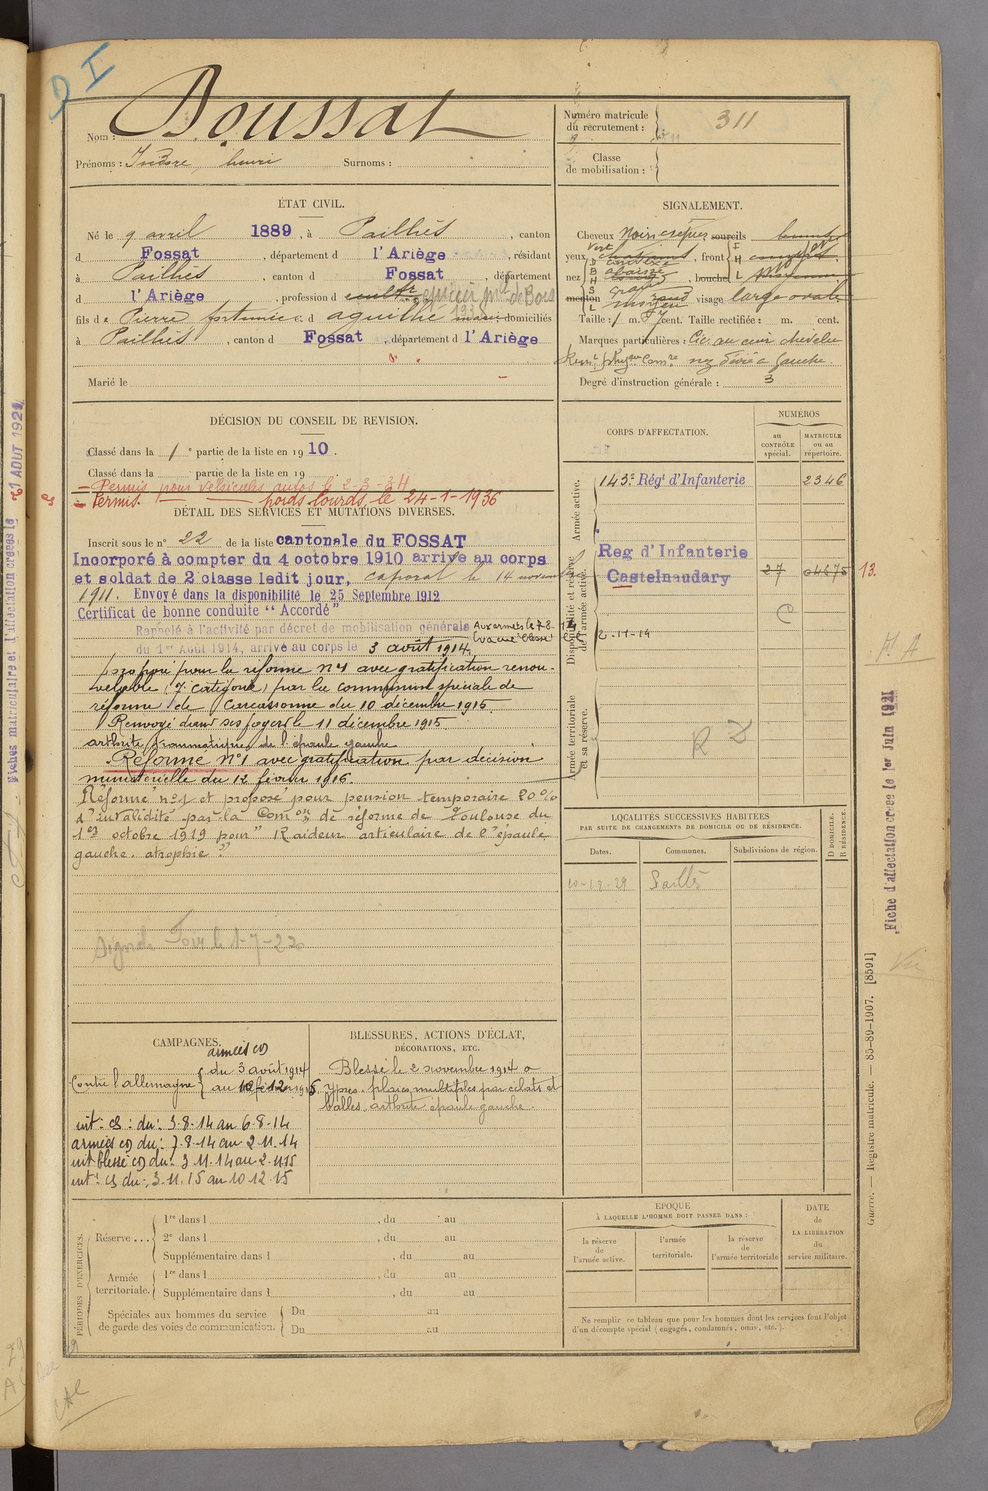 D I
Nom : Boussat
Prénoms : Isidore, henri Surnoms :
Numéro matricule du recrutement : 311
Classe de mobilisation :
ÉTAT CIVIL.
Né le 9 avril 1889, à Pailhès, canton
d Fossat, département d l'Ariège, résidant
à Pailhès, canton d Fossat, département
d l'Ariège, profession d cultr épicier md de Bois
fils de Pierre fortuné et d aguilhé domiciliés
à Pailhès, canton d Fossat, département d l'Ariège
Marié le
SIGNALEMENT.
Cheveux Noirs crépus sourcils
yeux, front
nez, bouche
menton visage large ovale
Taille : 1 m. cent. Taille rectifiée : m. cent.
Marques particulières : Cic. au cuir chevelu
nez dévié à gauche
Degré d'instruction générale : 3
DÉCISION DU CONSEIL DE REVISION.
Classé dans la 1e partie de la liste en 1910.
Classé dans la partie de la liste en 19
- Permis pour véhicules autos le 2-3-34
- Permis poids lourds le 24-1-1936
DÉTAIL DES SERVICES ET MUTATIONS DIVERSES.
Inscrit sous le n° 22 de la liste cantonale du FOSSAT
Incorporé à compter du 4 octobre 1910 arrivé au corps
et soldat de 2e classe ledit jour, caporal le 14 novembre
1911. Envoyé dans la disponibilité le 25 Septembre 1912
Certificat de bonne conduite "Accordé"
Rappelé à l'activité par décret de mobilisation générale Aux armées le 7-8-14
du 1er Août 1914, arrivé au corps le 3 août 1914. Evacué blessé le 2-11-14
proposé pour la réforme n°1 avec gratification renou-
velable (7e catégorie) par la commission spéciale de
réforme de Carcassonne du 10 décembre 1915.
Renvoyé dans ses foyers le 11 décembre 1915.
arthrite traumatique de l'épaule gauche
Réformé N°1 avec gratification par décision
ministérielle du 12 février 1916.
Réformé n°1 et proposé pour pension temporaire 20%
d'invalidité par la Comon de réforme de Toulouse du
1er octobre 1919 pour "Raideur articulaire de l'épaule
gauche. atrophie"
Signalé le 1-7-22
CORPS D'AFFECTATION.
NUMÉROS
au CONTRÔLE spécial.
MATRICULE ou au répertoire.
Armée active.
143e Régt d'Infanterie 2346
Disponibilité et réserve de l'armée active.
Reg d'Infanterie
Castelnaudary 27 04475 13.
C
Armée territoriale et sa réserve.
LOCALITÉS SUCCESSIVES HABITÉES
PAR SUITE DE CHANGEMENTS DE DOMICILE OU DE RÉSIDENCE.
Dates. Communes. Subdivisions de région. D DOMICILE. R RÉSIDENCE.
10-12-29 Pailhès
CAMPAGNES.
armées (1)
Contre l'allemagne du 3 août 1914
au 10 12 1915
int: cs: du: 3.8.14 au 6.8.14
armées (1) du: 7.8.14 au 2.11.14
int blessé (1) du: 3.11.14 au 2.11.15
int: cs du: 3.11.15 au 10.12.15
BLESSURES, ACTIONS D'ÉCLAT,
DÉCORATIONS, ETC.
Blessé le 2 novembre 1914 à
Ypres: plaies multiples par éclats et
balles, arthrite épaule gauche.
PÉRIODES D'EXERCICES.
Réserve ...
1re dans l , du au
2e dans l , du au
Supplémentaire dans l , du au
Armée territoriale.
1re dans l , du au
Supplémentaire dans l , du au
Spéciales aux hommes du service
de garde des voies de communication.
Du au
Du au
ÉPOQUE
À LAQUELLE L'HOMME DOIT PASSER DANS :
la réserve de l'armée active.
l'armée territoriale.
la réserve de l'armée territoriale
DATE de LA LIBÉRATION du service militaire.
Ne remplir ce tableau que pour les hommes dont les services font l'objet
d'un décompte spécial (engagés, condamnés, omis, etc.).
Guerre. — Registre matricule. — 85-89-1907. [8591]
Fiche d'affectation créée le 1er Juin 1931
Fiches matriculaire et d'affectation créées le 21 AOUT 1929